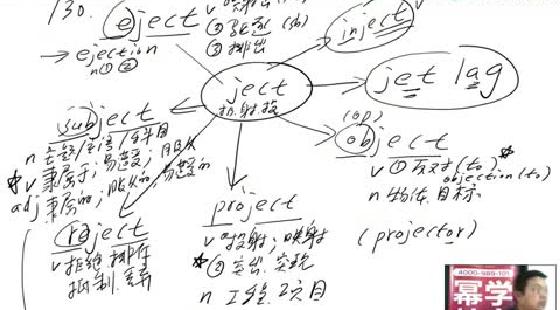 130.
eject
② 驱逐 (sb)
③ 排出
→ ejection
n ① ②
inject
ject
投.射.掷
jet lag
subject
n 主题/主语/科目
v 隶属于;易受;
adj 隶属的;
(op)
object
v ① 反对 (to)
objection (to)
n 物体.目标
reject
v 拒绝 排斥
抵制.丢弃
project
v ① 投射;映射
② 突出.
n 工程.项目
(projector)
4000-985-101
幂学